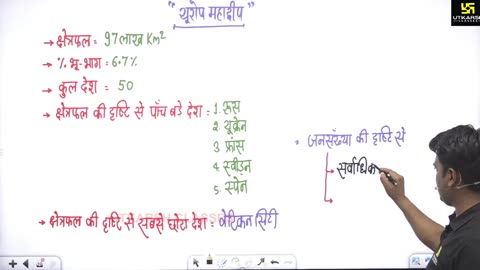 " यूरोप महाद्वीप "
→ क्षेत्रफल = 97 लाख Km²
→ % भू-भाग = 6.7%
→ कुल देश = 50
→ क्षेत्रफल की दृष्टि से पाँच बडे देश : 1. रूस
2. यूक्रेन
3 फ्रांस
4. स्वीडन
5. स्पेन
→ क्षेत्रफल की दृष्टि से सबसे छोटा देश : वेटिकन सिटी
* जनसंख्या की दृष्टि से
→ सर्वाधिक
→
UTKARSH